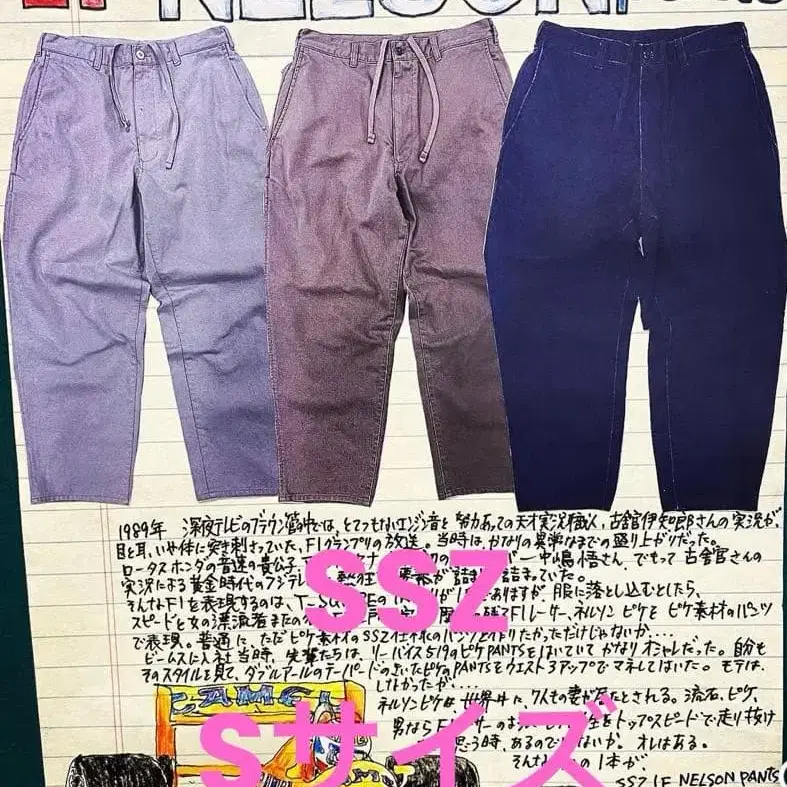 IF NELSON Pants
1989年 深夜テレビのブラウン管の中では、とてつもないエンジン音と努力あっての天才実況職人、古舘伊知郎さんの実況が、
目と耳、いや体に突き刺さっていた、F1グランプリの放送。当時は、かなりの異常なまでの盛り上がりだった。
ロータスホンダの音速の貴公子 中嶋悟さん、でもって古舘さんの
実況による黄金時代のフジテレ 詰まっていた。
そんなF1を表現するのは、 ありますが、服に落とし込むとしたら、
スピードと女の漂流者または F1レーサー、ネルソンピケとピケ素材のパンツ
で表現。普通に、ただピケ素材のSSZ仕様のパンツを作りたかっただけじゃないか...
ビームスに入社当時、先輩たちは、リーバイス519のピケPANTSをはいていてかなりオシャレだった。自分も
そのスタイルを見て、ダブルアールのテーパードのきいたピケのPANTSをウエスト3アップでマネしてはいた。モテは、
しなかったが...
ネルソンピケは、世界中に、7人もの妻が居たとされる。流石、ピケ、
男なら 生をトップスピードで走り抜け
思う時、あるのではないか。オレはある。
そんな の1本が、
SSZ IF NELSON PANTS
CAMEL
SSZ
Sサイズ